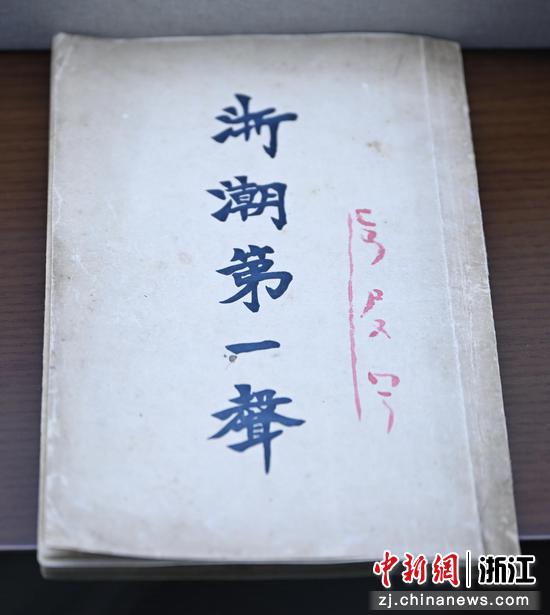 浙潮第一聲
中新網 浙江
zj.chinanews.com